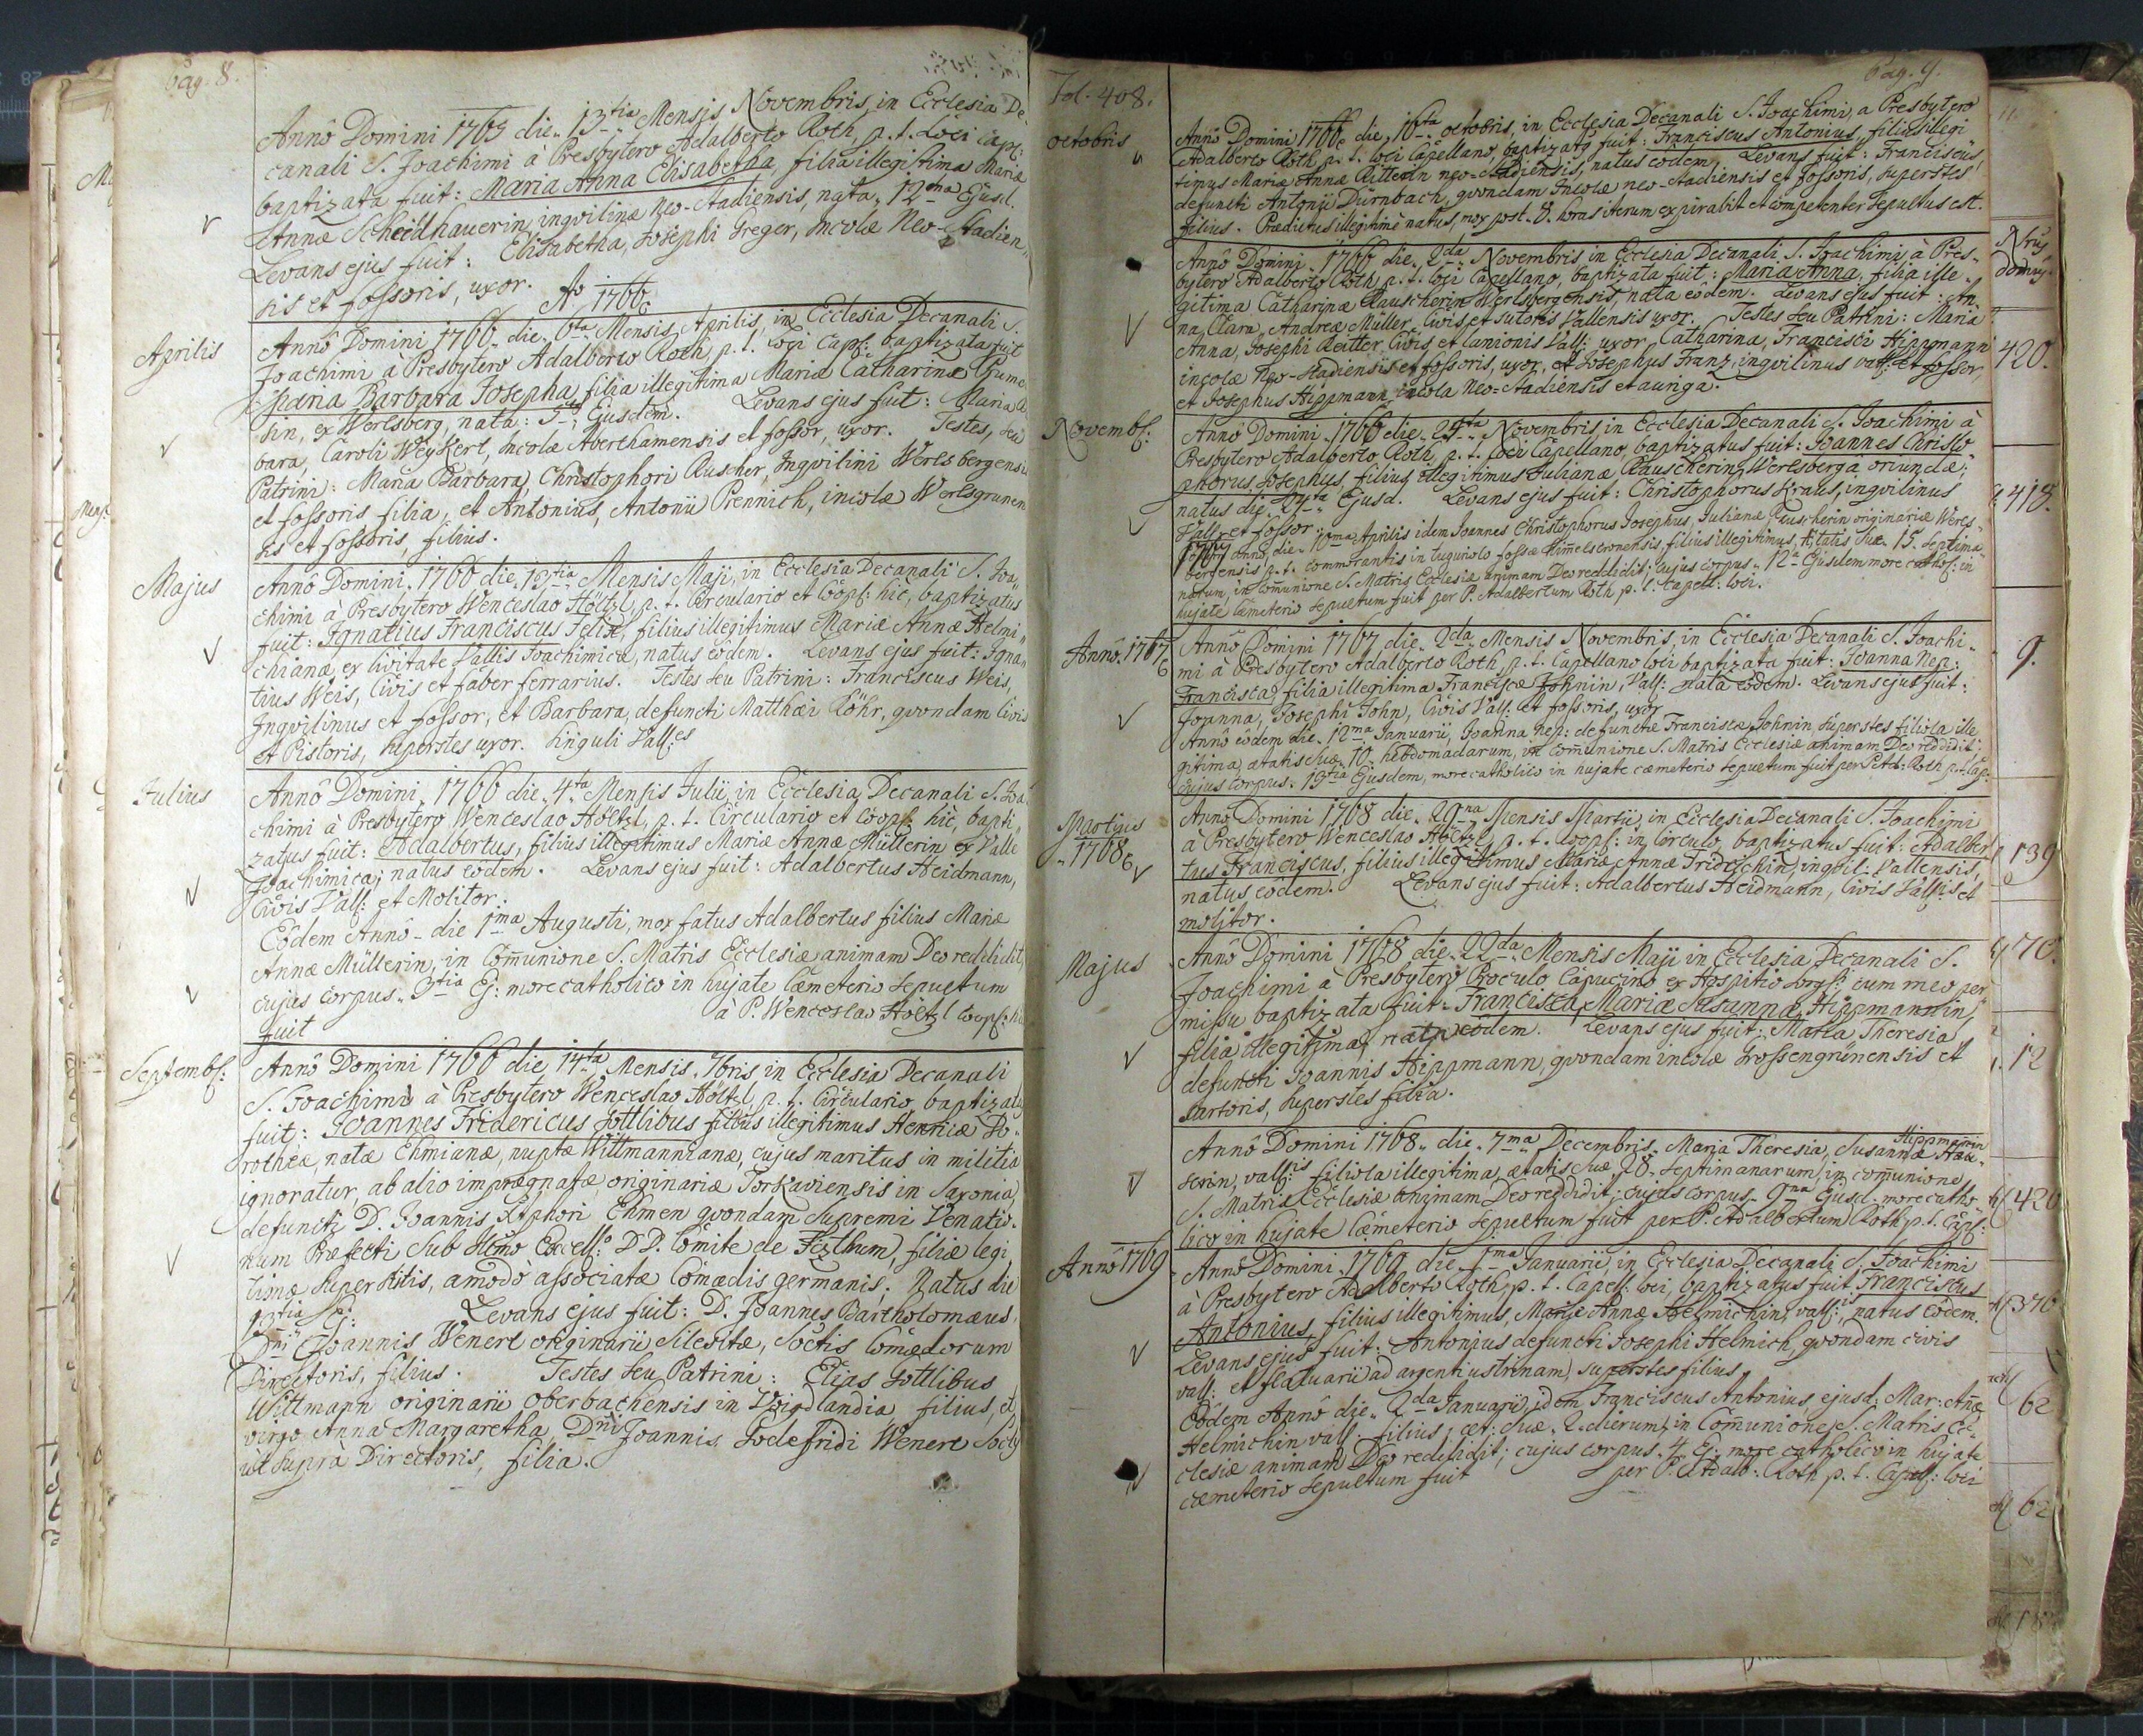 pag. 8.
Anno Domini 1765 die 13tia Mensis Novembris, in Ecclesia De-
canali S. Joachimi à Presbytero Adalberto Roth, p. t. Loci Capl:
baptizata fuit: Maria Anna Elisabetha, filia illegitima Mariæ
Annæ Scheidhauerin, inqvilinæ Neo-Stadiensis, nata 12ma Ejusd.
Levans ejus fuit: Elisabetha, Josephi Greger, Incolæ Neo-Stadien-
sis et fossoris, uxor.
Ao 1766
Aprilis
Anno Domini 1766 die 6ta Mensis Aprilis, in Ecclesia Decanali S.
Joachimi à Presbytero Adalberto Roth, p. t. Loci Capl: baptizata fuit
Barbara Josepha, filia illegitima Mariæ Catharinæ
sin, ex Werlsberg, nata: 5ta Ejusdem. Levans ejus fuit: Maria Bar
bara, Caroli Weykert, Incolæ Aberthamensis et fossor, uxor. Testes, seu
Patrini: Maria Barbara, Christophori Ruscher, Inqvilini Werlsbergensis
et fossoris filia, et Antonius, Antonii Prennich, incolæ Werlsgrunen
sis et fossoris, filius.
Majus
Anno Domini 1766 die 13tia Mensis Maji, in Ecclesia Decanali S. Joa-
chimi à Presbytero Wenceslao Höltzl, p. t. Circulario et Coop: hic, baptizatus
fuit: Ignatius Franciscus Felix, filius illegitimus Mariæ Annæ Helmi-
chianæ, ex Civitate Vallis Joachimicæ, natus eodem. Levans ejus fuit: Igna-
tius Weis, Civis et faber ferrarius. Testes seu Patrini: Franciscus Weis,
Inqvilinus et fossor, et Barbara, defuncti Matthæi Röhr, qvondam Civis
et Pistoris, superstes uxor. singuli Vall:es
Julius
Anno Domini 1766 die 4ta Mensis Julii, in Ecclesia Decanali S. Joa
chimi à Presbytero Wenceslao Höltzl, p. t. Circulario et Coop: hic, bapti
zatus fuit: Adalbertus, filius illegitimus Mariæ Annæ Müllerin ex Valle
Joachimica; natus eodem. Levans ejus fuit: Adalbertus Heidmann,
Civis Vall: et Molitor.
Eodem Anno die 1ma Augusti, mox fatus Adalbertus filius Mariæ
Annæ Müllerin, in Communione S. Matris Ecclesiæ animam Deo reddidit,
cujus corpus 3tia Ej: more catholico in hujate Cæmeterio sepultum
fuit à P. Wenceslao Höltzl Coop: hic
Septemb:
Anno Domini 1766 die 14ta Mensis 7bris, in Ecclesia Decanali
S. Joachimi à Presbytero Wenceslao Höltzl, p. t. Circulario, baptizatus
fuit: Joannes Fridericus Gottlibus filius illegitimus Henricæ Do-
rotheæ, natæ Ehmianæ, nuptæ Wittmannianæ, cujus maritus in militia
ignoratur, ab alio imprægnatæ, originariæ Torkaviensis in Saxonia,
defuncti D. Joannis Xtphori Ehmen qvondam Supremi Venatio-
num Præfecti Sub Illmo Excell: DD. Comite de Fizthum, filiæ legi
timæ superstitis, amodò associatæ Comædis germanis; Natus die
13tia Ej: Levans ejus fuit: D. Joannes Bartholomæus,
Dni Joannis Wenert originarii Silesitæ, Soctis Comædorum
Directoris, filius. Testes seu Patrini: Elias Gottlibus
Wittmann originarii Oberbachensis in Voigdlandia filius, et
virgo Anna Margaretha, Dni Joannis Godefridi Wenert Soctis
ut supra Directoris, filia.
Fol. 408.
pag. 9.
octobris
Anno Domini 1766 die 16ta octobris, in Ecclesia Decanali S. Joachimi, a Presbytero
Adalberto Roth p. t. loci Capellano, baptizatus fuit: Franciscus Antonius, filius illegi
timus Mariæ Annæ Ritterin neo-Stadiensis, natus eodem. Levans fuit: Franciscus,
defuncti Antonii Dürnbach, qvondam Incolæ neo-Stadiensis et fossoris, superstes
filius. Prædictus illegitimè natus, mox post 8. horas iterum expirabit et competenter sepultus est.
Anno Domini 1766 die 2da Novembris in Ecclesia Decanali S. Joachimi, à Pres-
bytero Adalberto Roth, p. t. loci Capellano, baptizata fuit: Maria Anna, filia ille-
gitima Catharinæ Rauscherin Werlsbergensis, nata eodem. Levans ejus fuit: An-
na Clara, Andreæ Müller, Civis et sutoris Vallensis uxor. Testes seu Patrini: Maria
Anna, Josephi Reitter Civis et lanionis Vall: uxor, Catharina, Francisci Hippmann
incolæ Neo-Stadiensis et fossoris, uxor, et Josephus Franz, inqvilinus vall: et fossor,
et Josephus Hippmann, incola Neo-Stadiensis et auriga.
Novemb:
Anno Domini 1766 die 25ta Novembris, in Ecclesia Decanali S. Joachimi à
Presbytero Adalberto Roth, p. t. loci Capellano, baptizatus fuit: Joannes Christo-
phorus Josephus, filius illegitimus Julianæ Rauscherin, Werlsberga oriundæ;
natus die 24ta Ejusd. Levans ejus fuit: Christophorus Kraus, inqvilinus
Vall: et fossor.
1767 anno, die 10ma Aprilis idem Joannes Christophorus Josephus, Julianæ Rauscherin originariæ Werls-
bergensis p. t. commorantis in tuguriolo fossæ Himmelscronensis, filius illegitimus, ætatis suæ 15. Septima-
narum, in communione S. Matris Ecclesiæ animam Deo reddidit; cujus corpus 12a Ejusdem more cathol: in
hujate Cæmeterio sepultum fuit per P. Adalbertum Roth p. t. Capell: loci.
Anno. 1767
Anno Domini 1767 die 2da Mensis Novembris, in Ecclesia Decanali S. Joachi-
mi à Presbytero Adalberto Roth, p. t. Capellano loci baptizata fuit: Joanna Nep:
Francisca, filia illegitima Franciscæ Johnin, Vall: nata eodem. Levans ejus fuit:
Joanna, Josephi John, Civis Vall: et fossoris, uxor
Anno eodem die 12ma Januarii, Joanna Nep: defunctæ Franciscæ Johnin superstes filiola ille
gitima, ætatis suæ 10 hebdomadarum, in communione S. Matris Ecclesiæ animam Deo reddidit;
cujus corpus 13tia Ejusdem, more catholico in hujate cæmeterio sepultum fuit per P. Ad: Roth p. t. Cap:
Martius
1768
Anno Domini 1768 die 29na Mensis Martii, in Ecclesia Decanali S. Joachimi
à Presbytero Wenceslao Höltzl, p. t. Coop: in Circulo, baptizatus fuit: Adalber
tus Franciscus, filius illegitimus Mariæ Annæ Fridrichin, inqvil: Vallensis,
natus eodem. Levans ejus fuit: Adalbertus Heidmann, Civis Vall:is et
molitor.
Majus
Anno Domini 1768 die 22da Mensis Maji in Ecclesia Decanali S.
Joachimi à Presbytero Proculo, Capucino ex Hospitio cum meo per
missu baptizata fuit: Francisca, Mariæ Susannæ Hippmannin,
filia illegitima, nata eodem. Levans ejus fuit: Maria Theresia
defuncti Joannis Hippmann, qvondam incolæ Grossengrünensis et
sartoris, superstes filia.
Anno Domini 1768 die 7ma Decembris Maria Theresia, Susannæ Hippmannin
vall:is filiola illegitima, ætatis suæ 28 septimanarum, in communione
S. Matris Ecclesiæ animam Deo reddidit; cujus corpus 9na Ejusd: more catho-
lico in hujate Cæmeterio sepultum fuit per P. Adalbertum Roth, p. t. Cap:
Anno 1769
Anno Domini 1769 die 1ma Januarii, in Ecclesia Decanali S. Joachimi
à Presbytero Adalberto Roth, p. t. Capell: loci, baptizatus fuit Franciscus
Antonius, filius illegitimus, Mariæ Annæ Helmichin, vall:is natus eodem.
Levans ejus fuit: Antonius defuncti Josephi Helmich, qvondam civis
vall: et flatuarii ad argenti ustrinam, superstes filius.
Eodem Anno die 2da Januarii, idem Franciscus Antonius, ejusd. Mar: Annæ
Helmichin vall: filius; æt: suæ 2. dierum, in Communione S. Matris Ec-
clesiæ animam Deo reddidit; cujus corpus 4. Ej: more catholico in hujate
cæmeterio sepultum fuit per P. Adalb: Roth p. t. Capell: loci
11
Nrus
domus
420.
418.
9.
139
70.
12
420
370
62
62